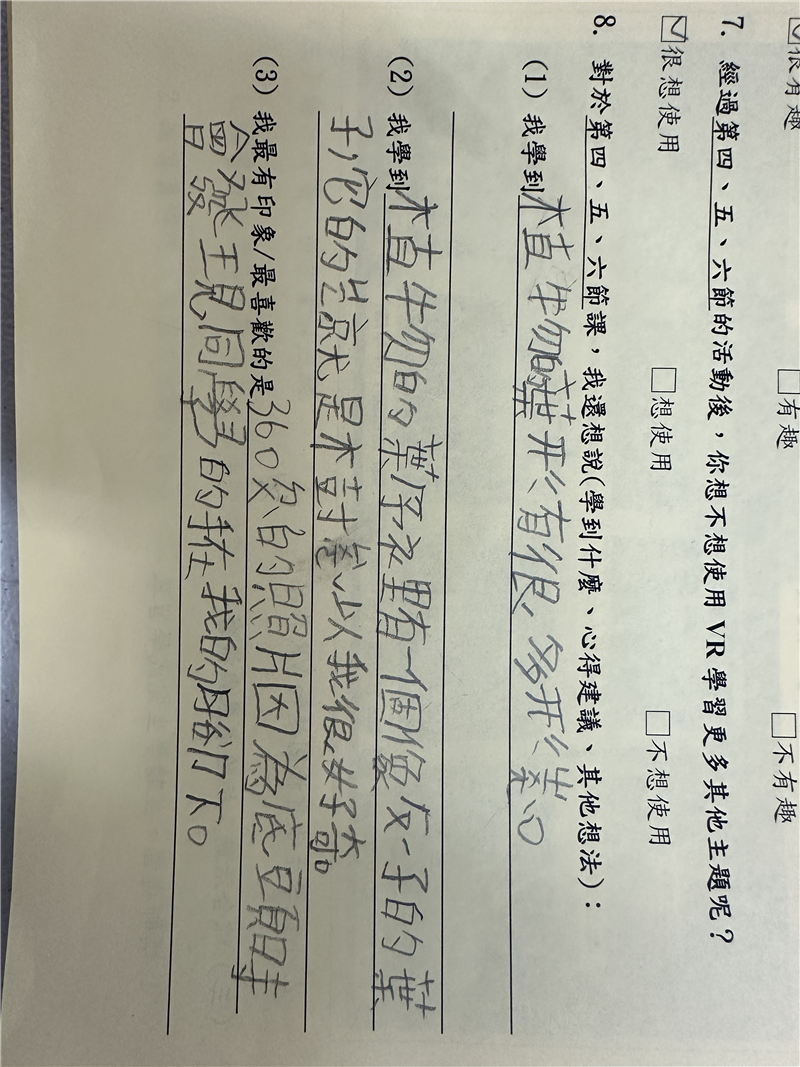 ☑很有趣 □有趣 □不有趣
7. 經過第四、五、六節的活動後，你想不想使用 VR 學習更多其他主題呢？
☑很想使用 □想使用 □不想使用
8. 對於第四、五、六節課，我還想說(學到什麼、心得建議、其他想法)：
(1) 我學到植物的葉形有很多形
(2) 我學到植物的葉子裡有一個像 子的葉
子，它的 就是 以我很好奇。
(3) 我最有印象/最喜歡的是360 的照片因為底頭時
會發現同學的 在我的 下。